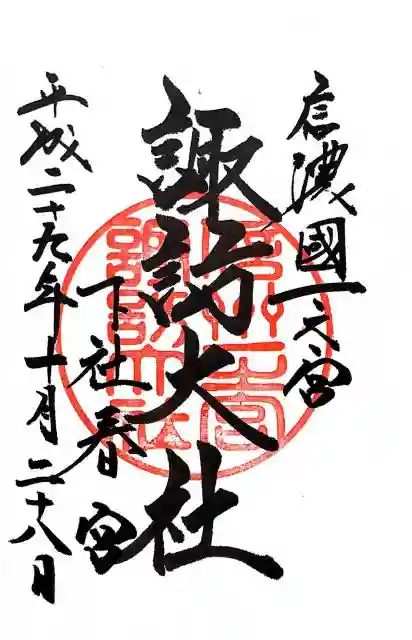 信濃國一之宮
諏訪大社
下社春宮
平成二十九年十月二十八日